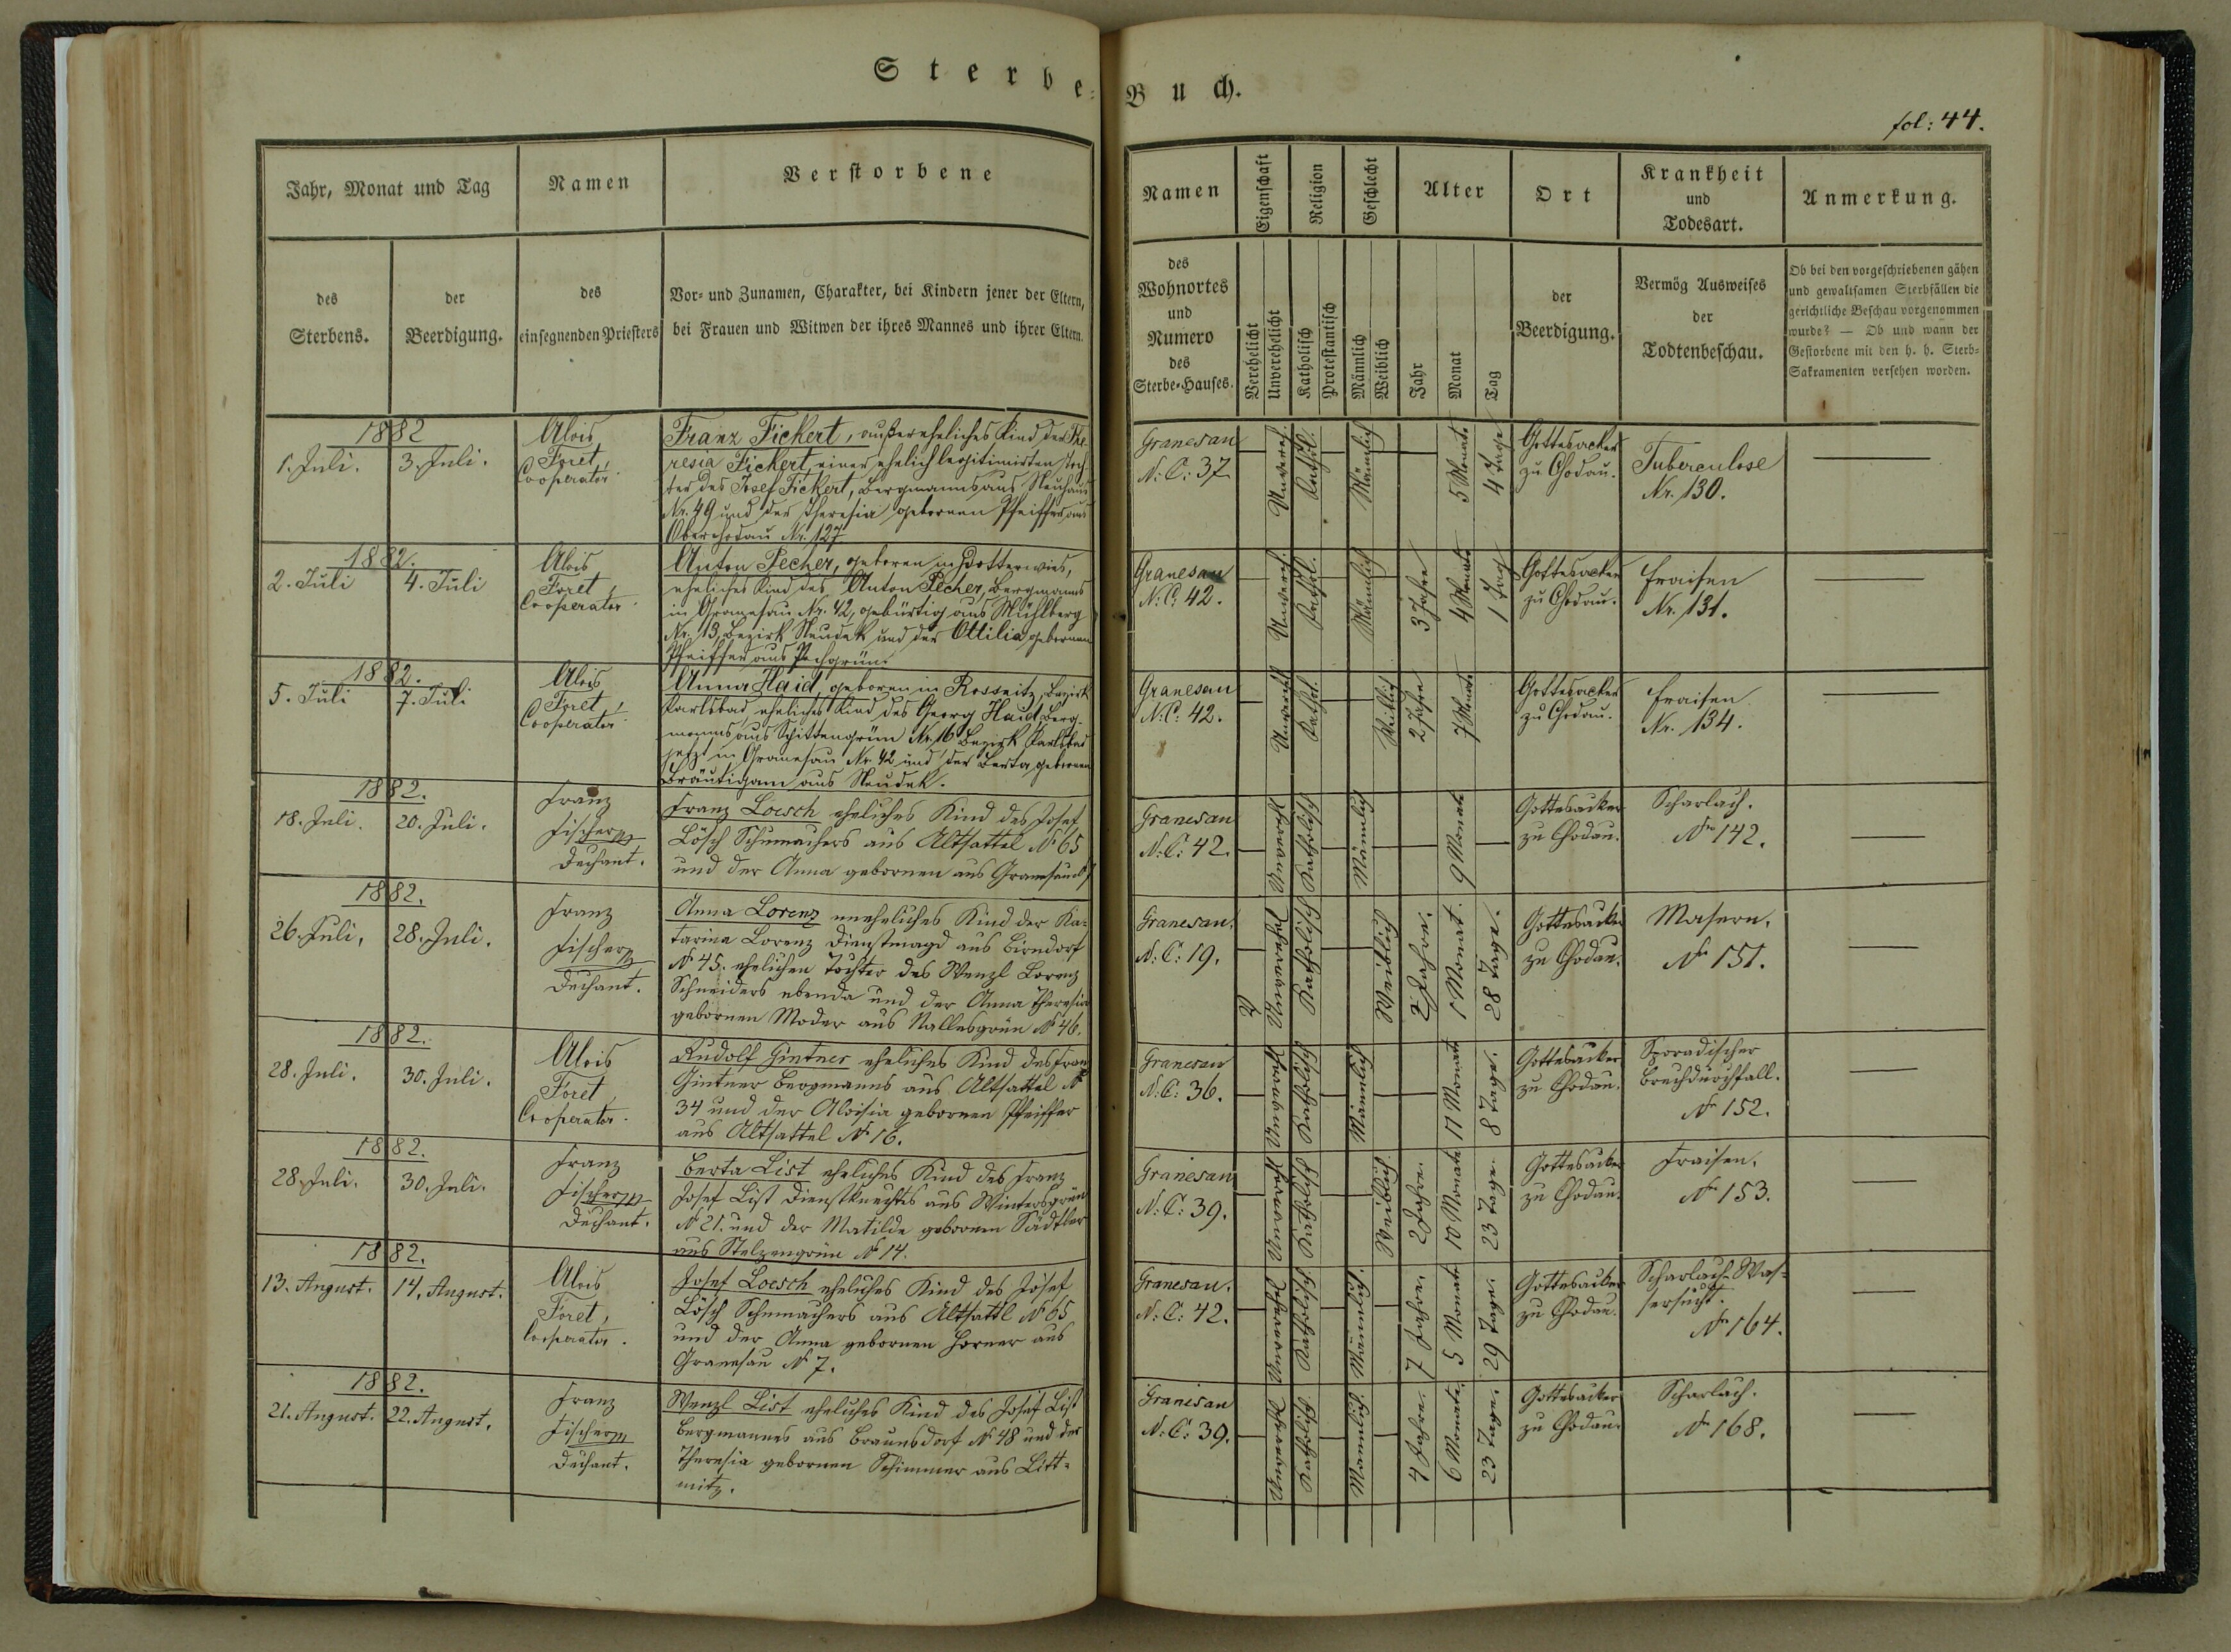 Sterbe-
Buch.
fol: 44.
Jahr, Monat und Tag
Namen
Verstorbene
des
Sterbens.
der
Beerdigung.
des
einsegnenden Priesters
Vor- und Zunamen, Charakter, bei Kindern jener der Eltern,
bei Frauen und Witwen der ihres Mannes und ihrer Eltern.
Namen
Eigenschaft
Religion
Geschlecht
Alter
Ort
Krankheit
und
Todesart.
Anmerkung.
des
Wohnortes
und
Numero
des
Sterbe-Hauses.
Verehelicht
Unverehelicht
Katholisch
Protestantisch
Männlich
Weiblich
Jahr
Monat
Tag
der
Beerdigung.
Vermög Ausweises
der
Todtenbeschau.
Ob bei den vorgeschriebenen gähen
und gewaltsamen Sterbfällen die
gerichtliche Beschau vorgenommen
wurde? — Ob und wann der
Gestorbene mit den h. h. Sterb-
Sakramenten versehen worden.
1882
1. Juli.
3. Juli.
Alois
Foret,
Cooperator.
Franz Fickert, außereheliches Kind der The
resia Fickert, einer ehelich legitimirten Toch
ter des Josef Fickert, Bergmanns aus Neuhaus
Nr. 49 und der Theresia gebornen Pfeiffer aus
Oberchodau Nr. 127
Granesau
N: C: 37
Unvereh.
Kathol.
Männlich
5 Monate
4 Tage
Gottesacker
zu Chodau.
Tuberculose
Nr. 130.
1882.
2. Juli
4. Juli
Alois
Foret,
Cooperator.
Anton Pecher, geboren in Dotterwies,
eheliches Kind des Anton Pecher, Bergmanns
in Granesau Nr. 42, gebürtig aus Mühlberg
Nr. 13, Bezirk Neudek und der Ottilia gebornen
Pfeiffer aus Pechgrün.
Granesau
N: C: 42.
Unvereh.
Kathol.
Männlich
3 Jahre
4 Monate
1 Tag
Gottesacker
zu Chodau.
Fraisen
Nr. 131.
1882.
5. Juli
7. Juli
Alois
Foret,
Cooperator.
Anna Haid, geboren in Rossnitz, Bezirk
Karlsbad, eheliches Kind des Georg Haid, Berg-
manns aus Schittengrün Nr. 16 Bezirk Karlsbad
jetzt in Granesau Nr. 42 und der Berta gebornen
Bräutigam aus Neudek.
Granesau
N: C: 42.
Unvereh.
Kathol.
Weiblich
2 Jahre
7 Monate
Gottesacker
zu Chodau.
Fraisen
Nr. 134.
1882.
18. Juli.
20. Juli.
Franz
Fischer
Dechant.
Franz Loesch eheliches Kind des Josef
Lösch Schumachers aus Altsattel No 65
und der Anna gebornen aus Granesau
Granesau
N: C: 42.
Unverehl
Katholisch
Männlich
9 Monate
Gottesacker
zu Chodau.
Scharlach.
No 142.
1882.
26. Juli.
28. Juli.
Franz
Fischer
Dechant.
Anna Lorenz uneheliches Kind der Ka-
tarina Lorenz Dienstmagd aus Birndorf
No 45. ehelichen Tochter des Wenzl Lorenz
Schneiders ebenda und der Anna Theresia
gebornen Moder aus Nallesgrün No 46.
Granesau.
N: C: 19.
Unverehel
Katholisch
Weiblich
2 Jahre.
1 Monat.
28 Tage.
Gottesacker
zu Chodau.
Masern.
No 151.
1882.
28. Juli.
30. Juli.
Alois
Foret
Cooperator.
Rudolf Gintner eheliches Kind des Franz
Gintner Bergmanns aus Altsattel No
34 und der Aloisia gebornen Pfeiffer
aus Altsattel No 16.
Granesau
N: C: 36.
Unverehl
Katholisch
Männlich
11 Monate
8 Tage.
Gottesacker
zu Chodau.
Sporadischer
Brechdurchfall.
No 152.
1882.
28. Juli.
30. Juli.
Franz
Fischer
Dechant.
Berta List eheliches Kind des Franz
Josef List Dienstknechtes aus Wintersgrün
No 21. und der Matilde gebornen Sädtler
aus Stelzengrün No 14.
Granesau
N: C: 39.
Unverehl
Katholisch
Weiblich
2 Jahre.
10 Monate
23 Tage.
Gottesacker
zu Chodau.
Fraisen.
No 153.
1882.
13. August.
14. August.
Alois
Foret,
Cooperator.
Josef Loesch eheliches Kind des Josef
Lösch Schumachers aus Altsattl No 65
und der Anna gebornen Horner aus
Granesau No 7.
Granesau.
N: C: 42.
Unverehel
Katholisch.
Männlich.
7 Jahre.
5 Monate
29 Tage.
Gottesacker
zu Chodau.
Scharlach-Was-
sersucht.
No 164.
1882.
21. August.
22. August.
Franz
Fischer
Dechant.
Wenzl List eheliches Kind des Josef List
Bergmannes aus Braunsdorf No 48 und der
Theresia gebornen Schimmer aus Litt-
mitz.
Granesau
N: C: 39.
Unverehl
Katholisch.
Männlich.
4 Jahre.
6 Monate.
23 Tage.
Gottesacker
zu Chodau.
Scharlach.
No 168.